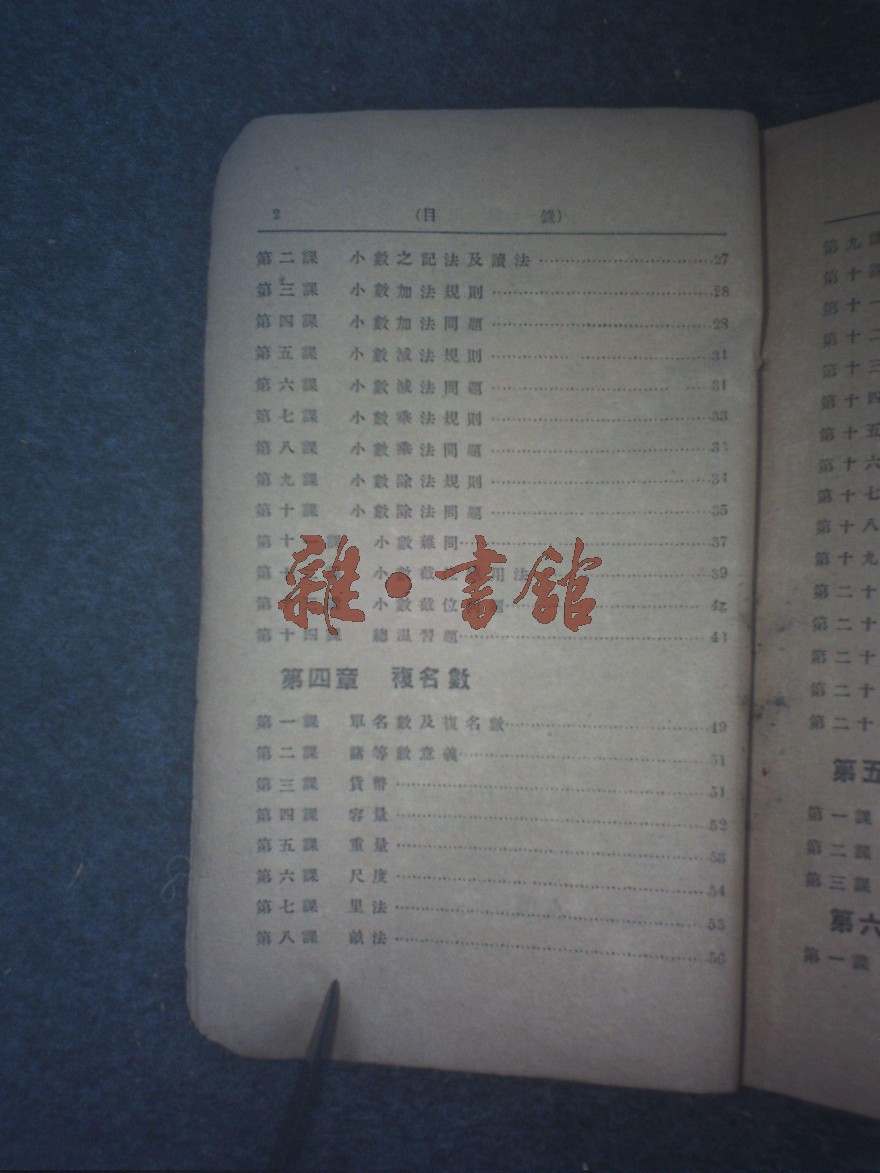 2 (目 錄)
第二課 小數之記法及讀法 27
第三課 小數加法規則 28
第四課 小數加法問題 28
第五課 小數減法規則 31
第六課 小數減法問題 31
第七課 小數乘法規則 33
第八課 小數乘法問題
第九課 小數除法規則 34
第十課 小數除法問題 35
第十一課 小數雜問 37
小數截 用法 39
小數截位 題
第十四課 總溫習題 44
雜·書舘
第四章 複名數
第一課 單名數及複名數 49
第二課 諸等數意義 51
第三課 貨幣 51
第四課 容量 52
第五課 重量 53
第六課 尺度 54
第七課 里法 55
第八課 畝法 56
第九課
第十課
第十一
第十二
第十三
第十四
第十五
第十六
第十七
第十八
第十九
第二十
第二十
第二十
第二十
第二十
第五
第一課
第二課
第三課
第六
第一課